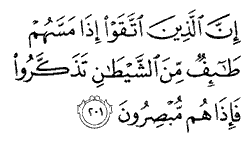 إِنَّ ٱلَّذِينَ ٱتَّقَوْا۟ إِذَا مَسَّهُمْ
طَـٰٓئِفٌ مِّنَ ٱلشَّيْطَـٰنِ تَذَكَّرُوا۟
فَإِذَا هُم مُّبْصِرُونَ ﴿٢٠١﴾